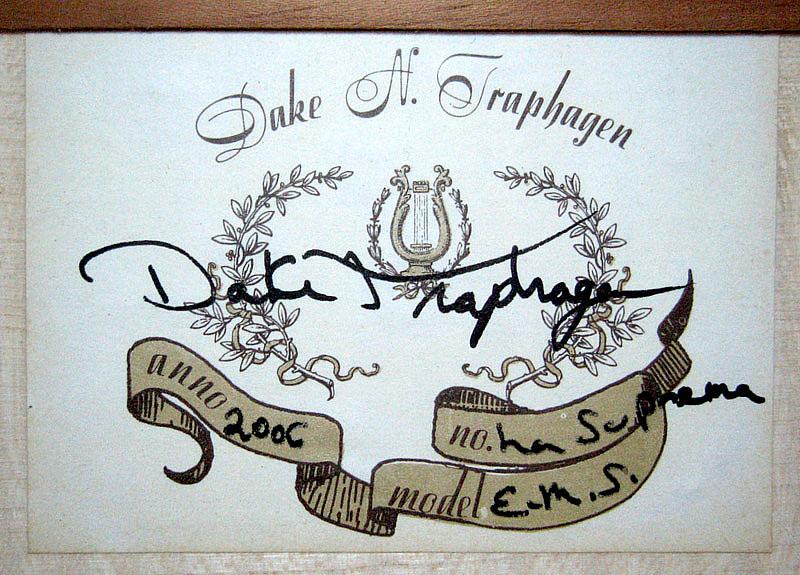 Dake N. Traphagen
Dake Traphagen
anno 2006
no. La Suprema
model E.M.S.